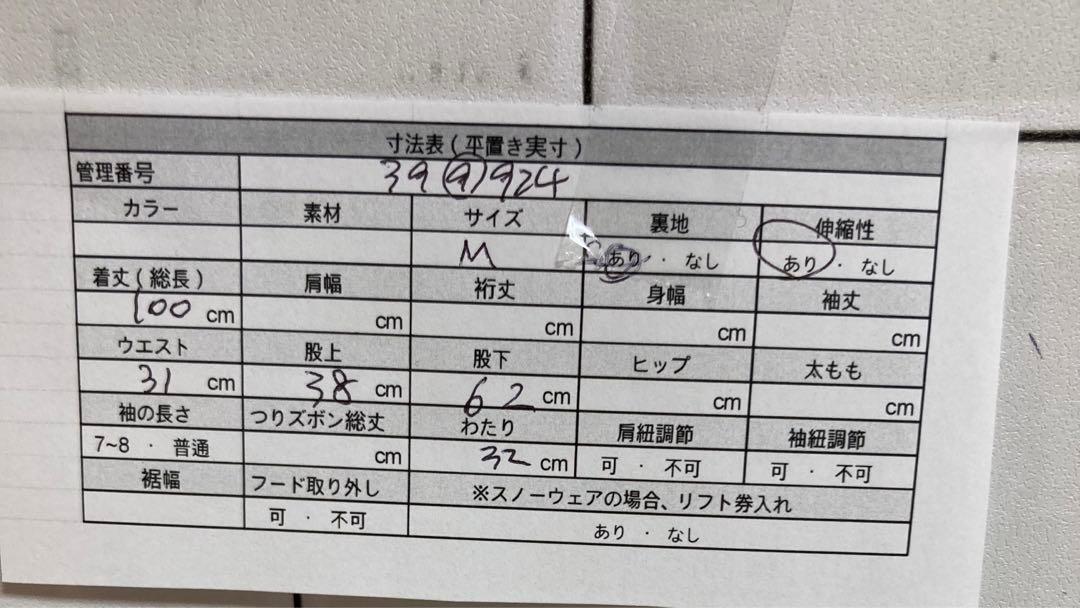 寸法表(平置き実寸)
管理番号 39ⓐ924
カラー 素材 サイズ 裏地 伸縮性
M あり・なし あり・なし
着丈(総長) 肩幅 裄丈 身幅 袖丈
100 cm cm cm cm cm
ウエスト 股上 股下 ヒップ 太もも
31 cm 38 cm 62 cm cm cm
袖の長さ つりズボン総丈 わたり 肩紐調節 袖紐調節
7~8・普通 cm 32 cm 可・不可 可・不可
裾幅 フード取り外し ※スノーウェアの場合、リフト券入れ
可・不可 あり・なし